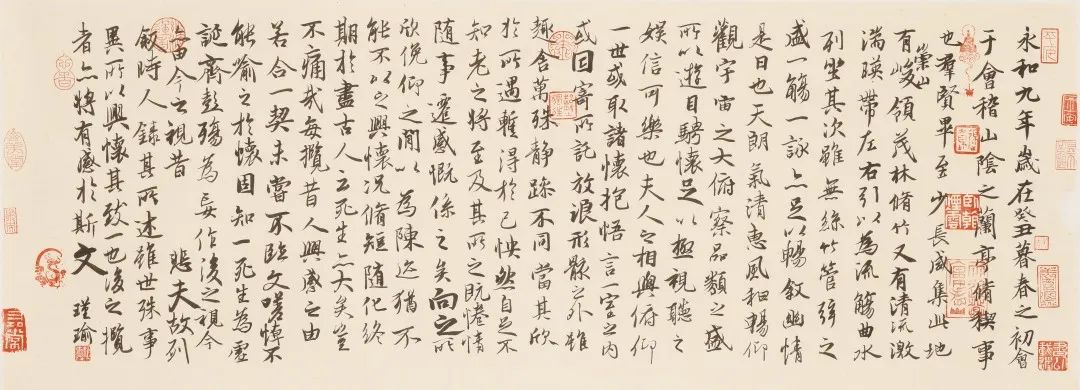 永和九年歲在癸丑暮春之初會
于會稽山陰之蘭亭脩禊事
也羣賢畢至少長咸集此地
有崇山峻領茂林脩竹又有清流激
湍暎帶左右引以為流觴曲水
列坐其次雖無絲竹管弦之
盛一觴一詠亦足以暢敘幽情
是日也天朗氣清惠風和暢仰
觀宇宙之大俯察品類之盛
所以遊目騁懷足以極視聽之
娛信可樂也夫人之相與俯仰
一世或取諸懷抱悟言一室之內
或因寄所託放浪形骸之外雖
趣舍萬殊静躁不同當其欣
於所遇暫得於己怏然自足不
知老之將至及其所之既惓情
隨事遷感慨係之矣向之所
欣俛仰之閒以為陳迹猶不
能不以之興懷況脩短隨化終
期於盡古人云死生亦大矣豈
不痛哉每攬昔人興感之由
若合一契未嘗不臨文嗟悼不
能喻之於懷固知一死生為虛
誕齊彭殤為妄作後之視今
亦由今之視昔 悲夫故列
敘時人錄其所述雖世殊事
異所以興懷其致一也後之攬
者亦將有感於斯文 瑾瑜